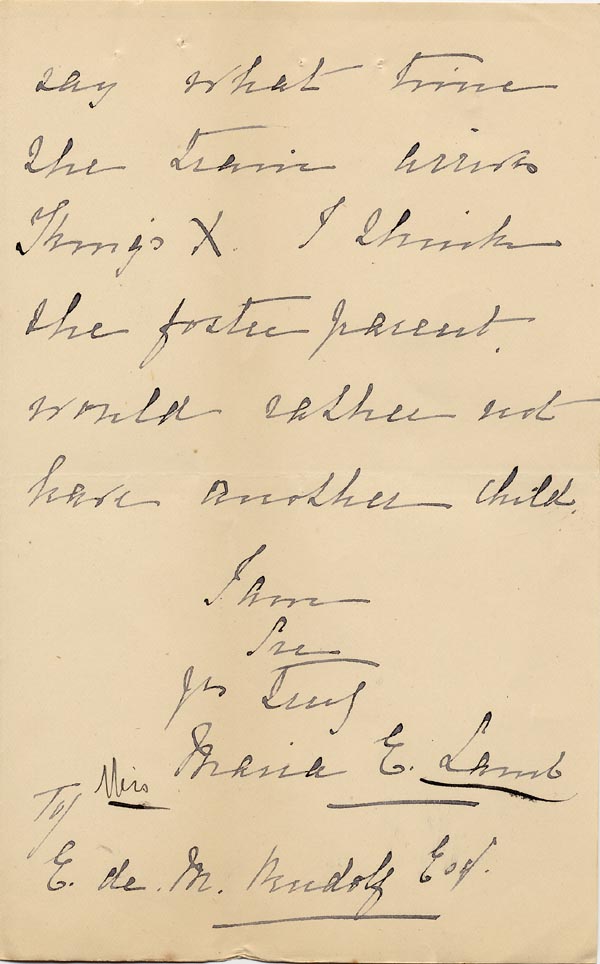 say what time
the train arrives
Kings X. I think
the foster parent
would rather not
have another child.
I am
Sir
yrs Truly
Miss Maria E. Lamb
To/
E. de. M. Rudolf Esq.